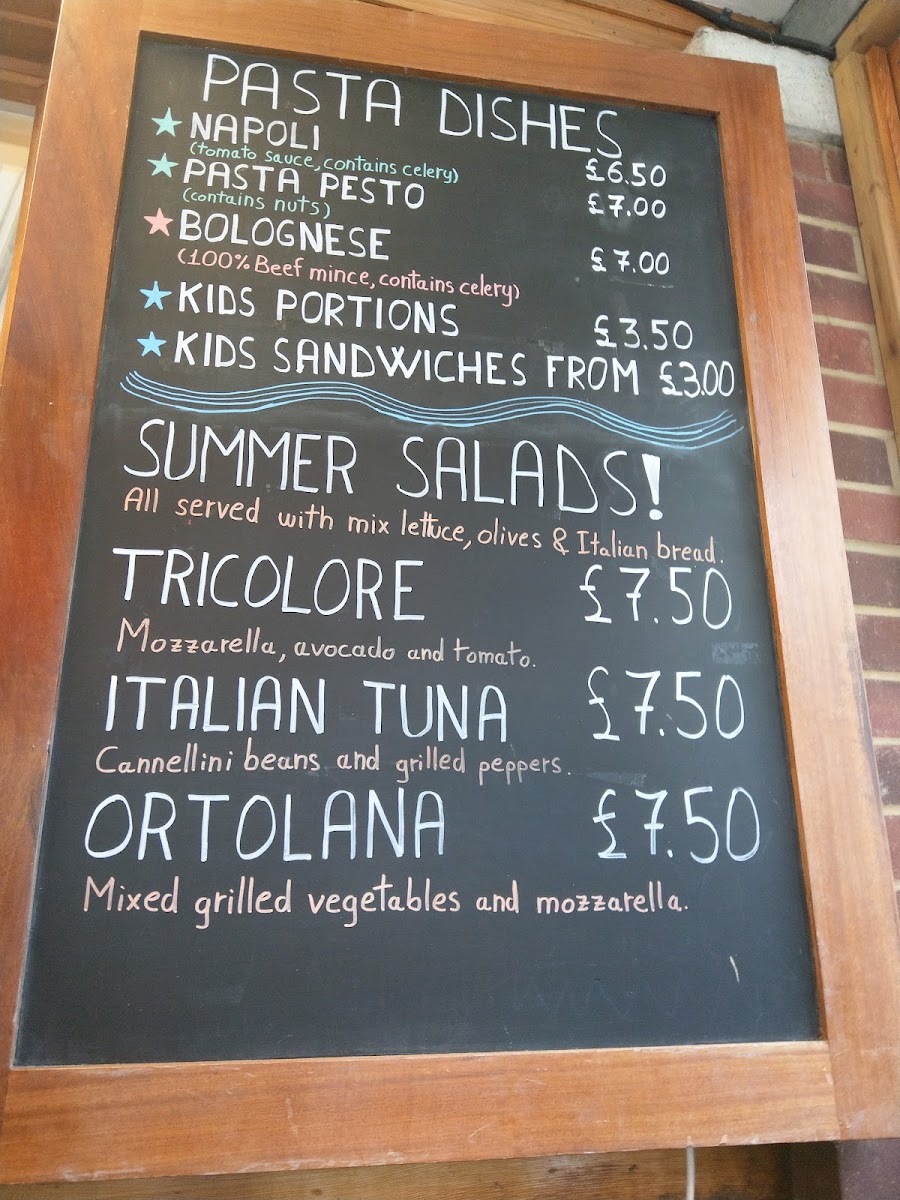 PASTA DISHES
★ NAPOLI £6.50
(tomato sauce, contains celery)
★ PASTA PESTO £7.00
(contains nuts)
★ BOLOGNESE £7.00
(100% Beef mince, contains celery)
★ KIDS PORTIONS £3.50
★ KIDS SANDWICHES FROM £3.00
SUMMER SALADS!
All served with mix lettuce, olives & Italian bread.
TRICOLORE £7.50
Mozzarella, avocado and tomato.
ITALIAN TUNA £7.50
Cannellini beans and grilled peppers.
ORTOLANA £7.50
Mixed grilled vegetables and mozzarella.